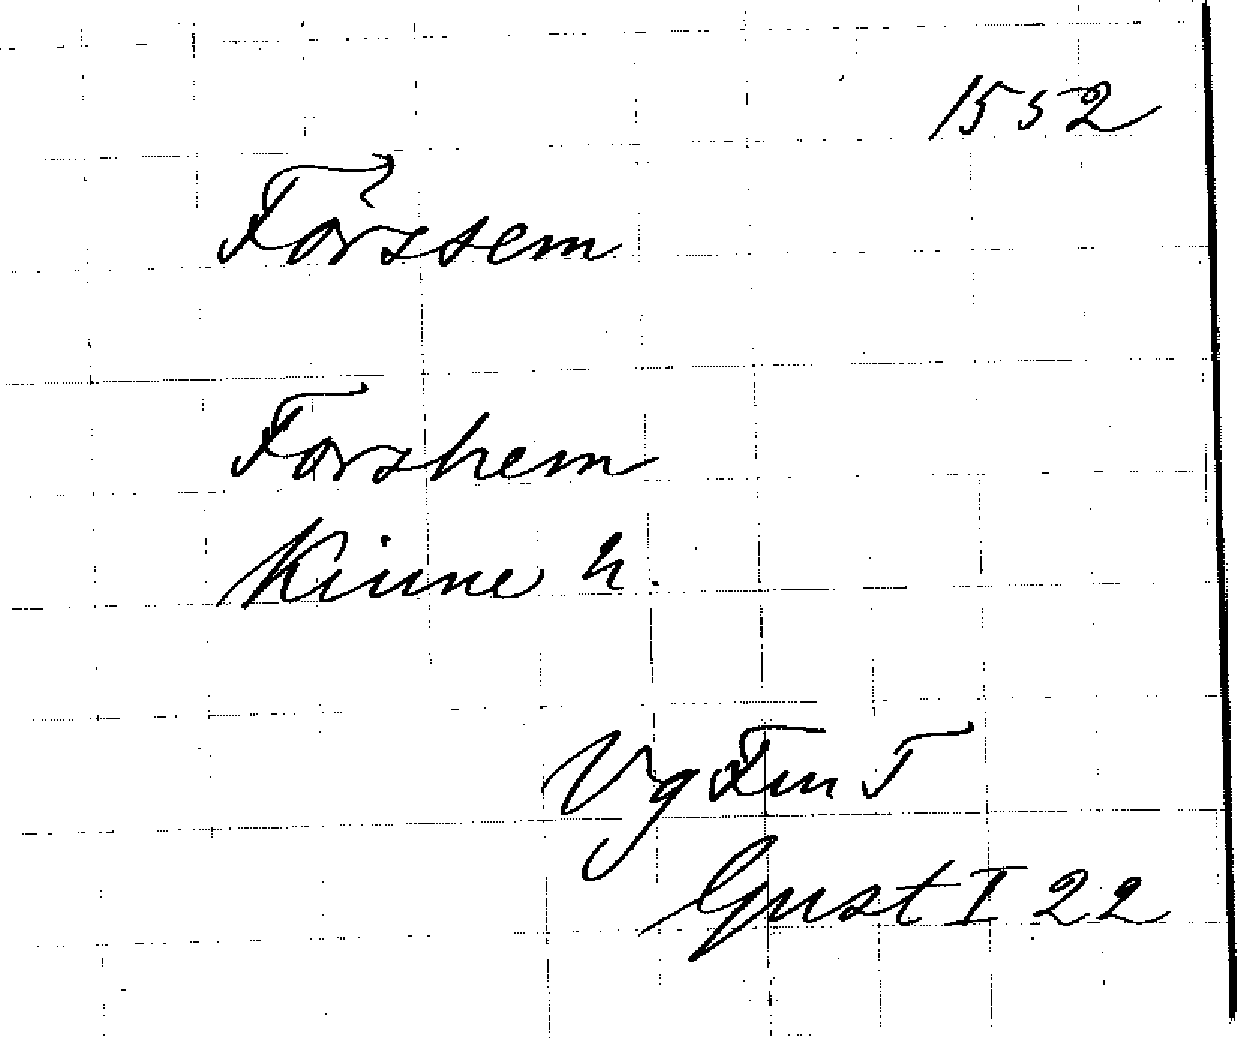 1552
Forssem
Forshem
Kinne h.
Vg
Gust I 22